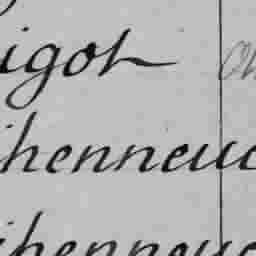 igot
henneuc
henneuc